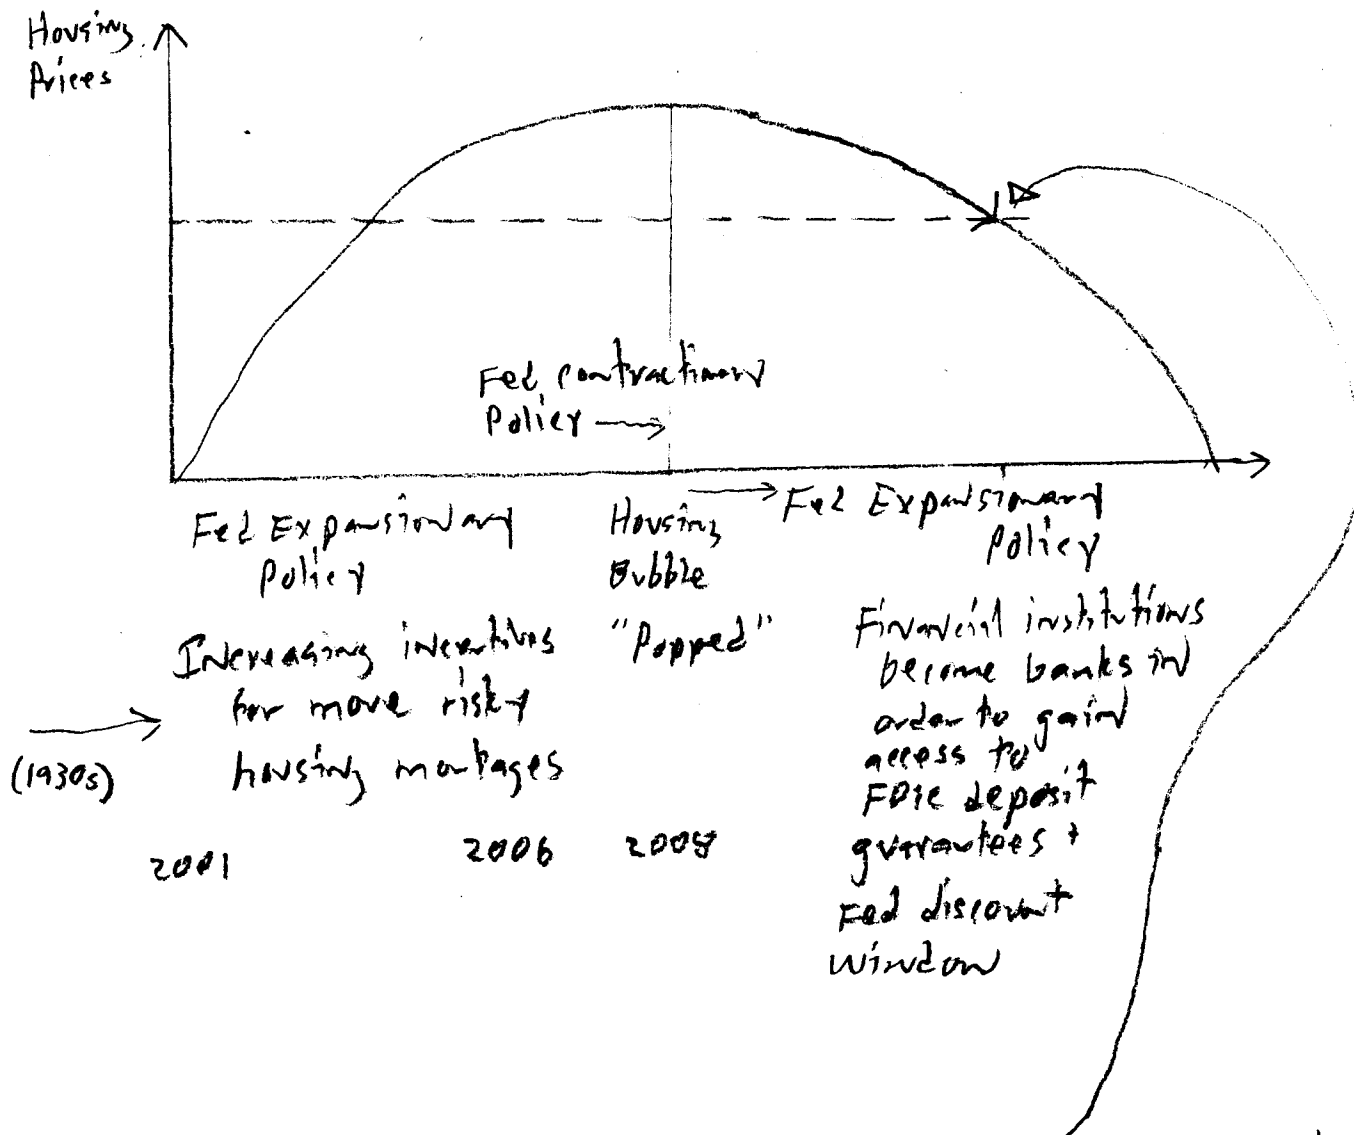 Housing
Prices
Fed contractionary
Policy
Fed Expansionary
Policy
Housing
Bubble
"Popped"
Fed Expansionary
Policy
Increasing incentives
for more risky
housing mortages
(1930s)
Financial institutions
become banks in
order to gain
access to
FDIC deposit
guarantees +
Fed discount
window
2001
2006